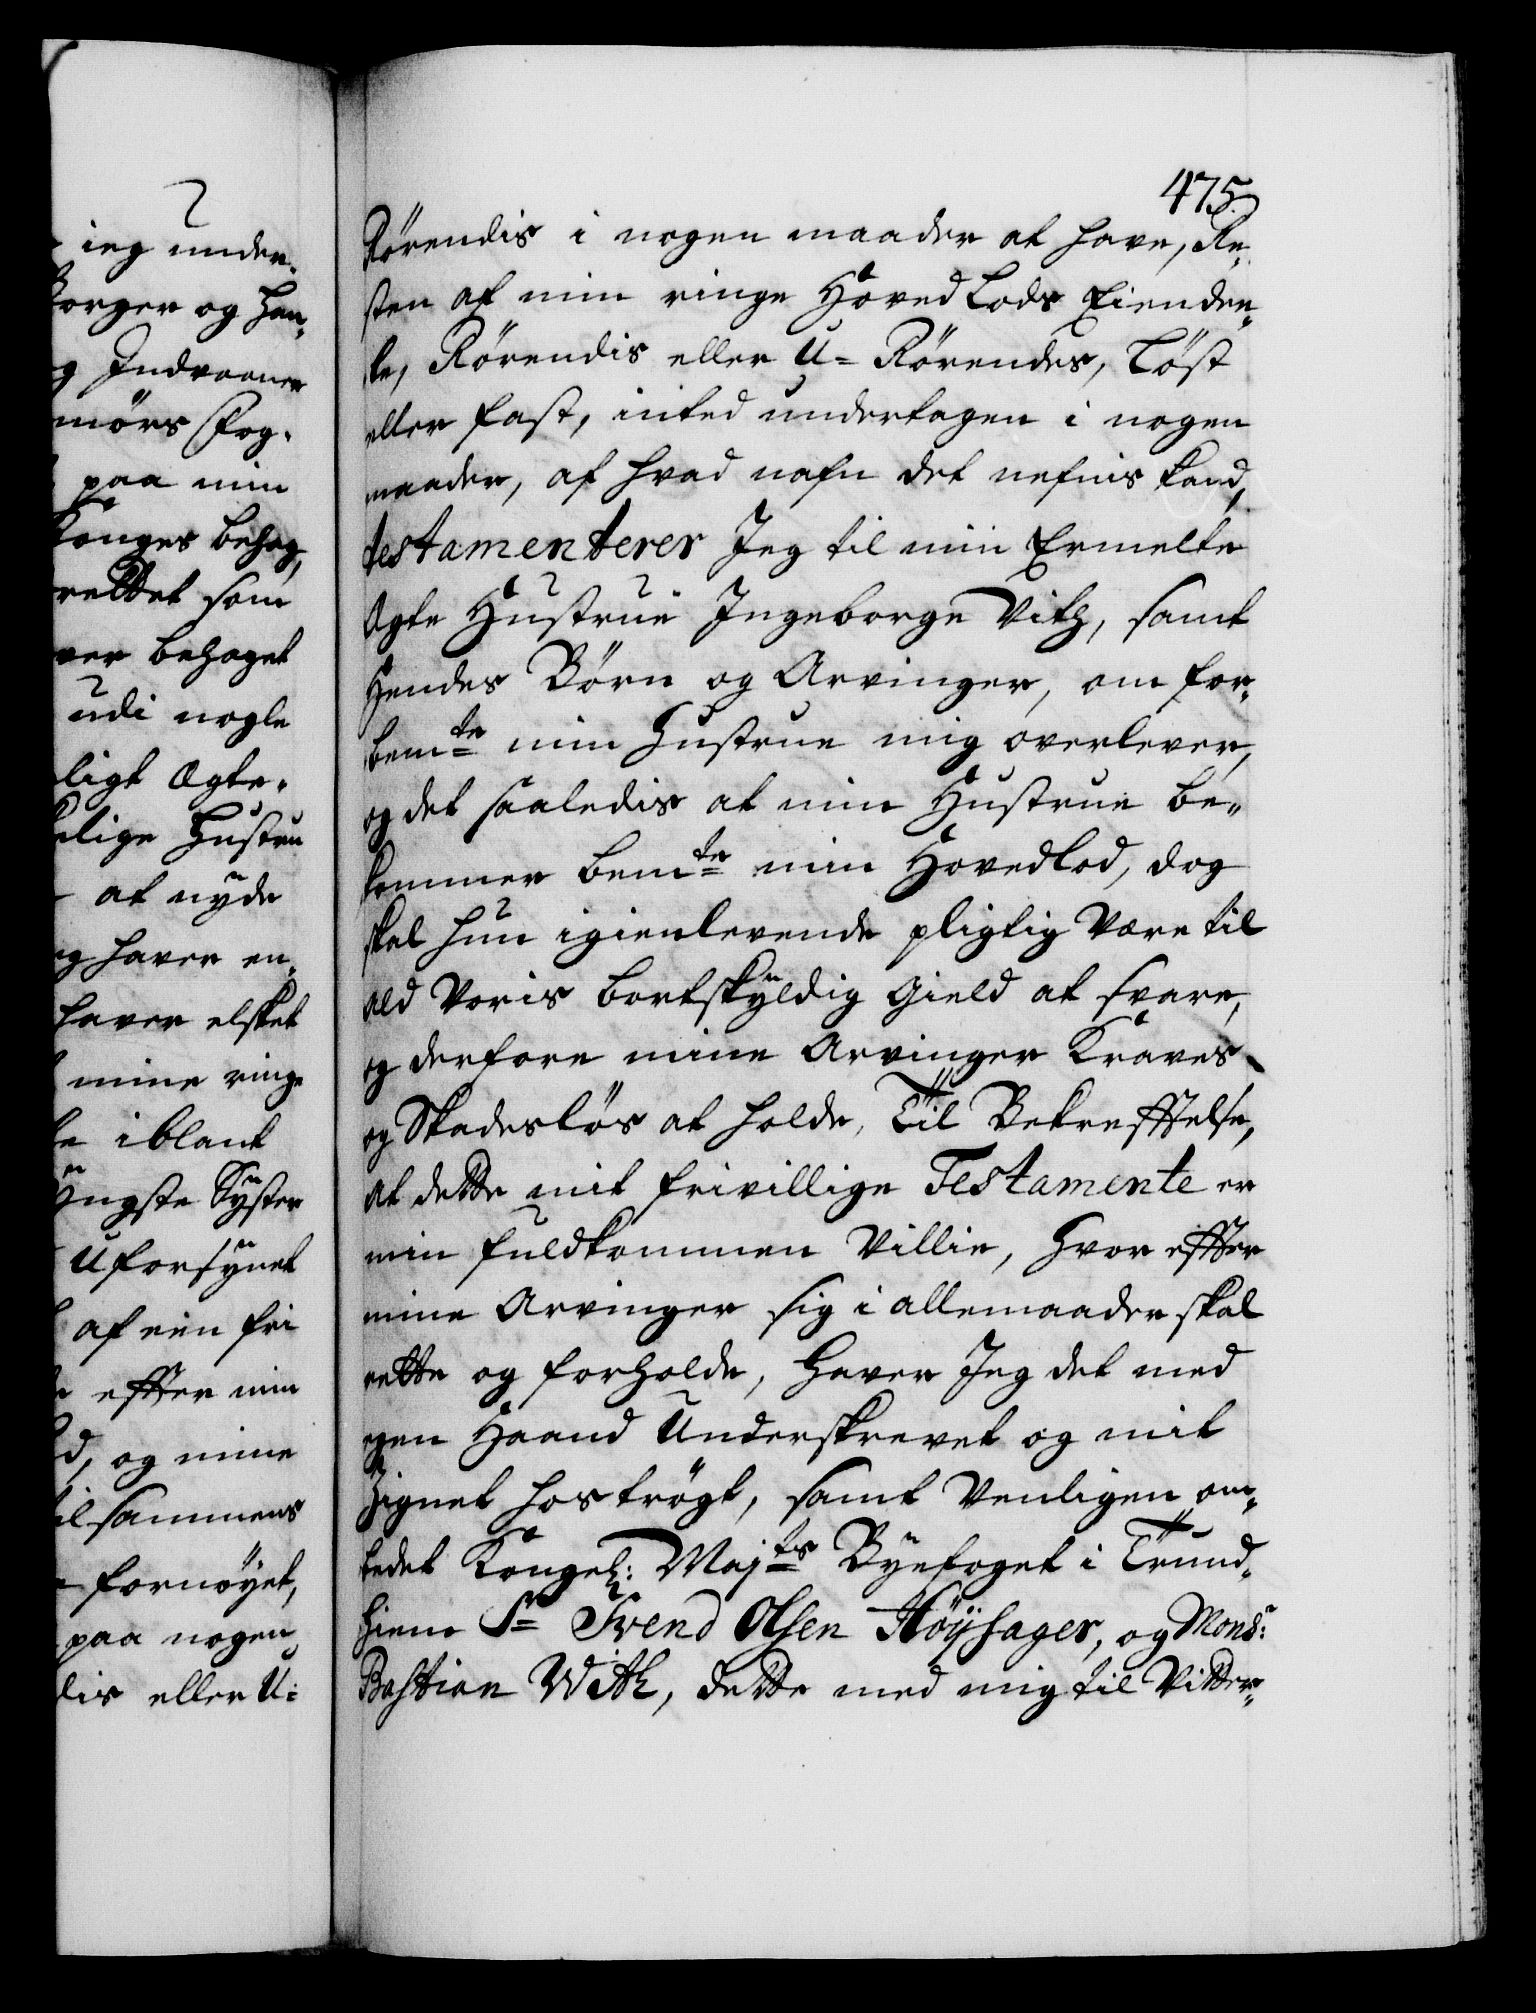 ieg under-
borger og Han-
g Indvaaner
mörs Fog-
paa min
Konges behag,
rettet som
ver behaget
udi nogle
ligt Ægte-
elige Hustru
at nyde
g haver en-
haver elsket
mine ringe
te iblant
yngste Syster
Uforsynet
af een fri
de effter min
d, og mine
tilsammens
fornöyet,
paa nogen
dis eller U-
475.
Rörendis i nogen maader at have, Re-
sten af min ringe Hoved Lods Eiende-
le, Rörendis eller U-Rörendes, Löst
eller fast, inted undertagen i nogen
maader, af hvad nafn det nefnis kand,
testamenterer Jeg til min Ermelte
Ægte Hustrue Ingeborge Vith, samt
Hendes Börn og Arvinger, om for-
bemte min Hustrue mig overlever,
og det saaledis at min Hustrue be-
kommer bemte min Hovedlod, dog
skal hun igienlevende pligtig være til
ald voris bortskyldig Gield at svare,
og derfore mine Arvinger Kraves
og Skadeslös at holde, Til Bekrefftelse,
at dette mit frivillige Testamente er
min fuldkommen Villie, hvor effter
mine Arvinger sig i allemaader skal
rette og forholde, haver Jeg det med
egen Haand Underskrevet og mit
Zignet hoströgt, samt Venligen om-
bedet Kongel: Majts Byefoget i Trund-
hiem Sr Svend Olsen Höysager, og Monsr:
Bastian With, dette med mig til Vitter-